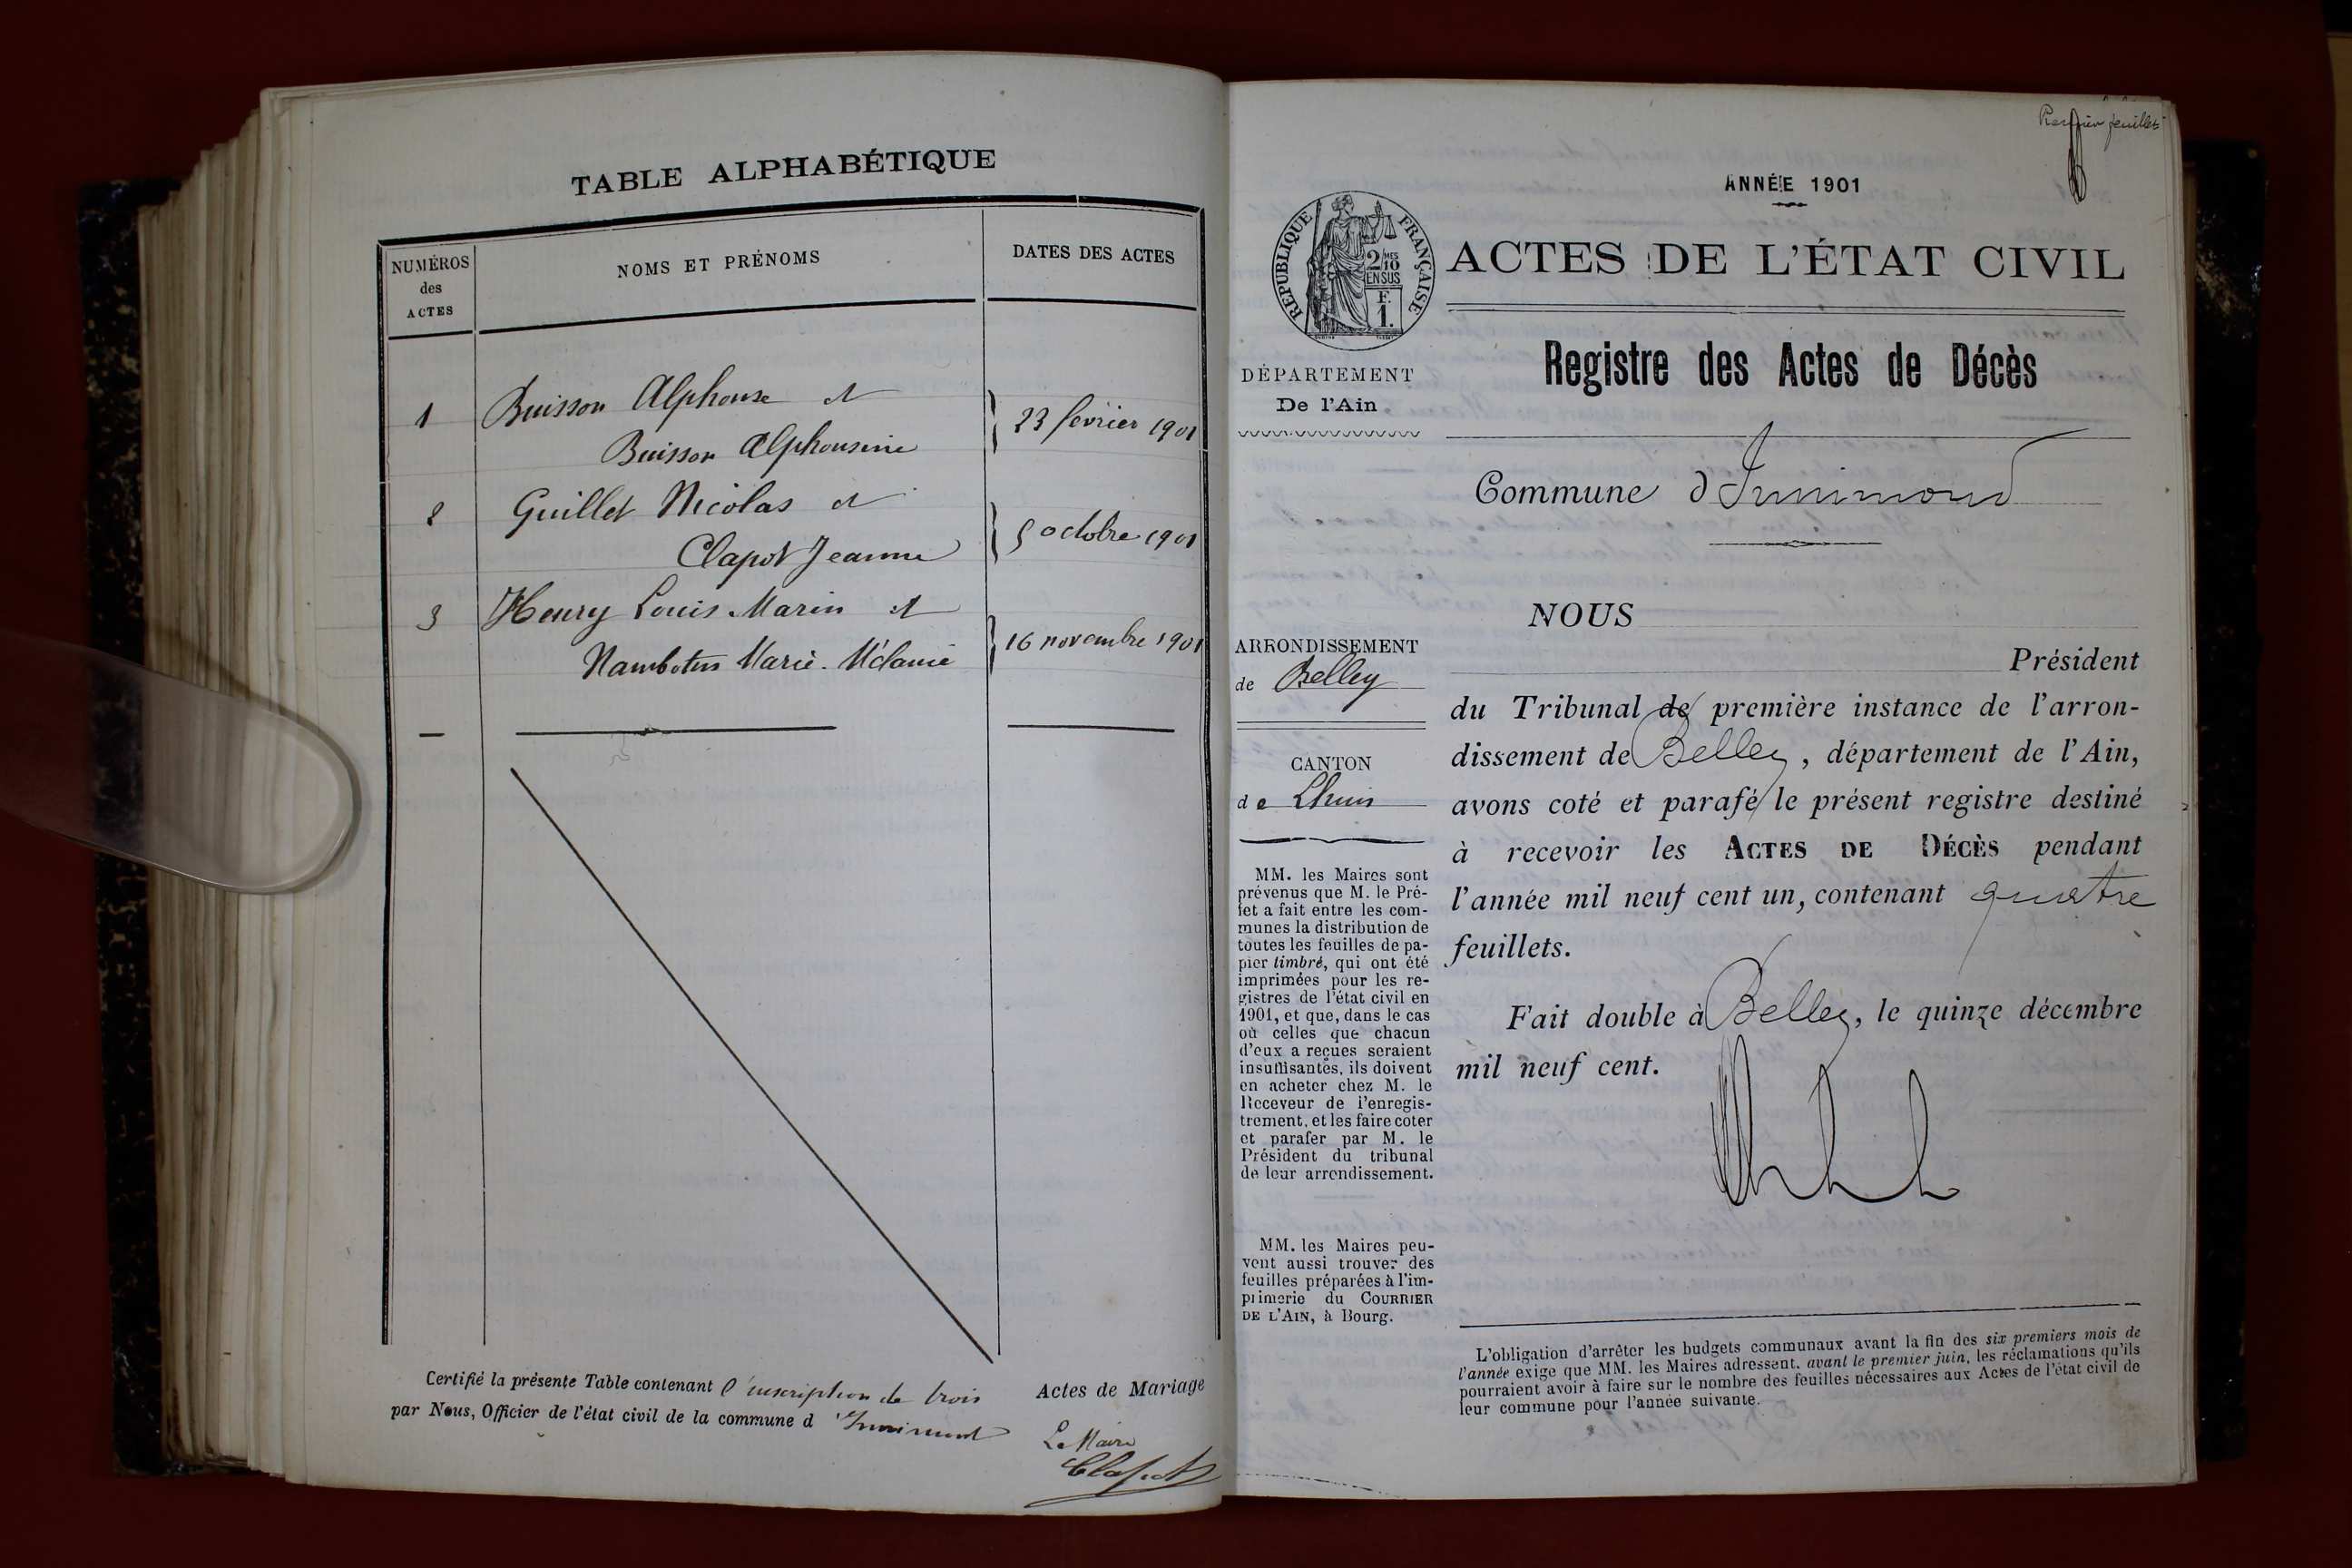 TABLE ALPHABÉTIQUE
NUMÉROS
des
ACTES
NOMS ET PRÉNOMS
DATES DES ACTES
1 Buisson Alphonse et
Buisson Alphonsine
23 février 1901
2 Guillet Nicolas et
Clapot Jeanne
5 octobre 1901
3 Henry Louis Marin et
Nambotin Marie-Mélanie
16 novembre 1901
Certifié la présente Table contenant l'inscription de trois Actes de Mariage
par Nous, Officier de l'état civil de la commune d'Innimont
Le Maire
Clapot
Premier feuillet
ANNÉE 1901
RÉPUBLIQUE FRANÇAISE
2/10
MES
EN SUS
F.
1.
ACTES DE L'ÉTAT CIVIL
DÉPARTEMENT
De l'Ain
Registre des Actes de Décès
Commune d'Innimond
ARRONDISSEMENT
de Belley
CANTON
de Lhuis
MM. les Maires sont
prévenus que M. le Pré-
fet a fait entre les com-
munes la distribution de
toutes les feuilles de pa-
pier timbré, qui ont été
imprimées pour les re-
gistres de l'état civil en
1901, et que, dans le cas
où celles que chacun
d'eux a reçues seraient
insuffisantes, ils doivent
en acheter chez M. le
Receveur de l'enregis-
trement, et les faire coter
et parafer par M. le
Président du tribunal
de leur arrondissement.
MM. les Maires peu-
vent aussi trouver des
feuilles préparées à l'im-
primerie du COURRIER
DE L'AIN, à Bourg.
NOUS
Président
du Tribunal de première instance de l'arron-
dissement de Belley, département de l'Ain,
avons coté et parafé le présent registre destiné
à recevoir les ACTES DE DÉCÈS pendant
l'année mil neuf cent un, contenant quatre
feuillets.
Fait double à Belley, le quinze décembre
mil neuf cent.
L'obligation d'arrêter les budgets communaux avant la fin des six premiers mois de
l'année exige que MM. les Maires adressent, avant le premier juin, les réclamations qu'ils
pourraient avoir à faire sur le nombre des feuilles nécessaires aux Actes de l'état civil de
leur commune pour l'année suivante.